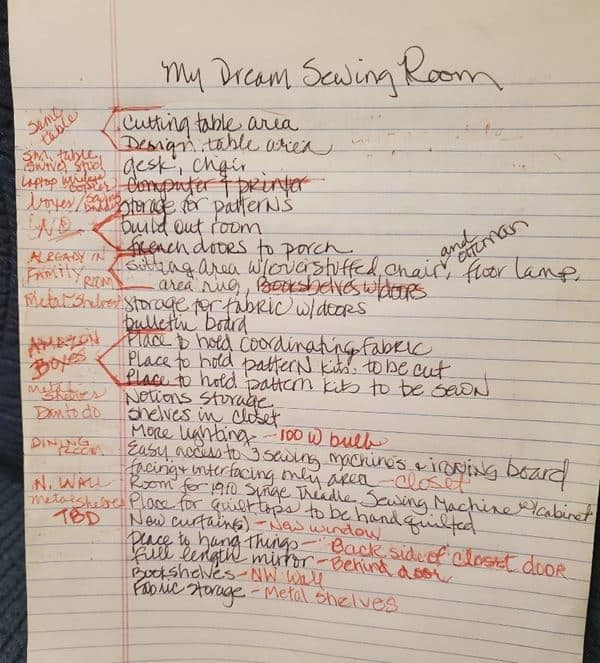 My Dream Sewing Room
Same table
Cutting table area
Design table area
Sm. table swivel stool
desk, chair
Laptop wireless copier
Computer & printer
boxes/
Storage for patterns
NO
build out room
French doors to porch
ALREADY IN FAMILY ROOM
Sitting area w/overstuffed, chair, and ottoman floor lamp,
area rug, Bookshelves w/doors
Metal Shelves
Storage for fabric w/doors
bulletin board
AMAZON BOXES
Place to hold coordinating fabric
Place to hold pattern kits, to be cut
Place to hold pattern kits to be sewn
Metal Shelves
Notions storage
Dan to do
Shelves in closet
More lighting - 100 W bulb
DINING ROOM
Easy access to 3 sewing machines & ironing board
facing & interfacing only area - closet
N. WALL
Room for 1910 Singe Treadle Sewing Machine w/cabinet
Metal Shelves
Place for quilt tops to be hand quilted
TBD
New curtain(s) - New window
Place to hang things - Back side of closet door
Full length mirror - Behind door
Bookshelves - NW Wall
Fabric Storage - Metal Shelves